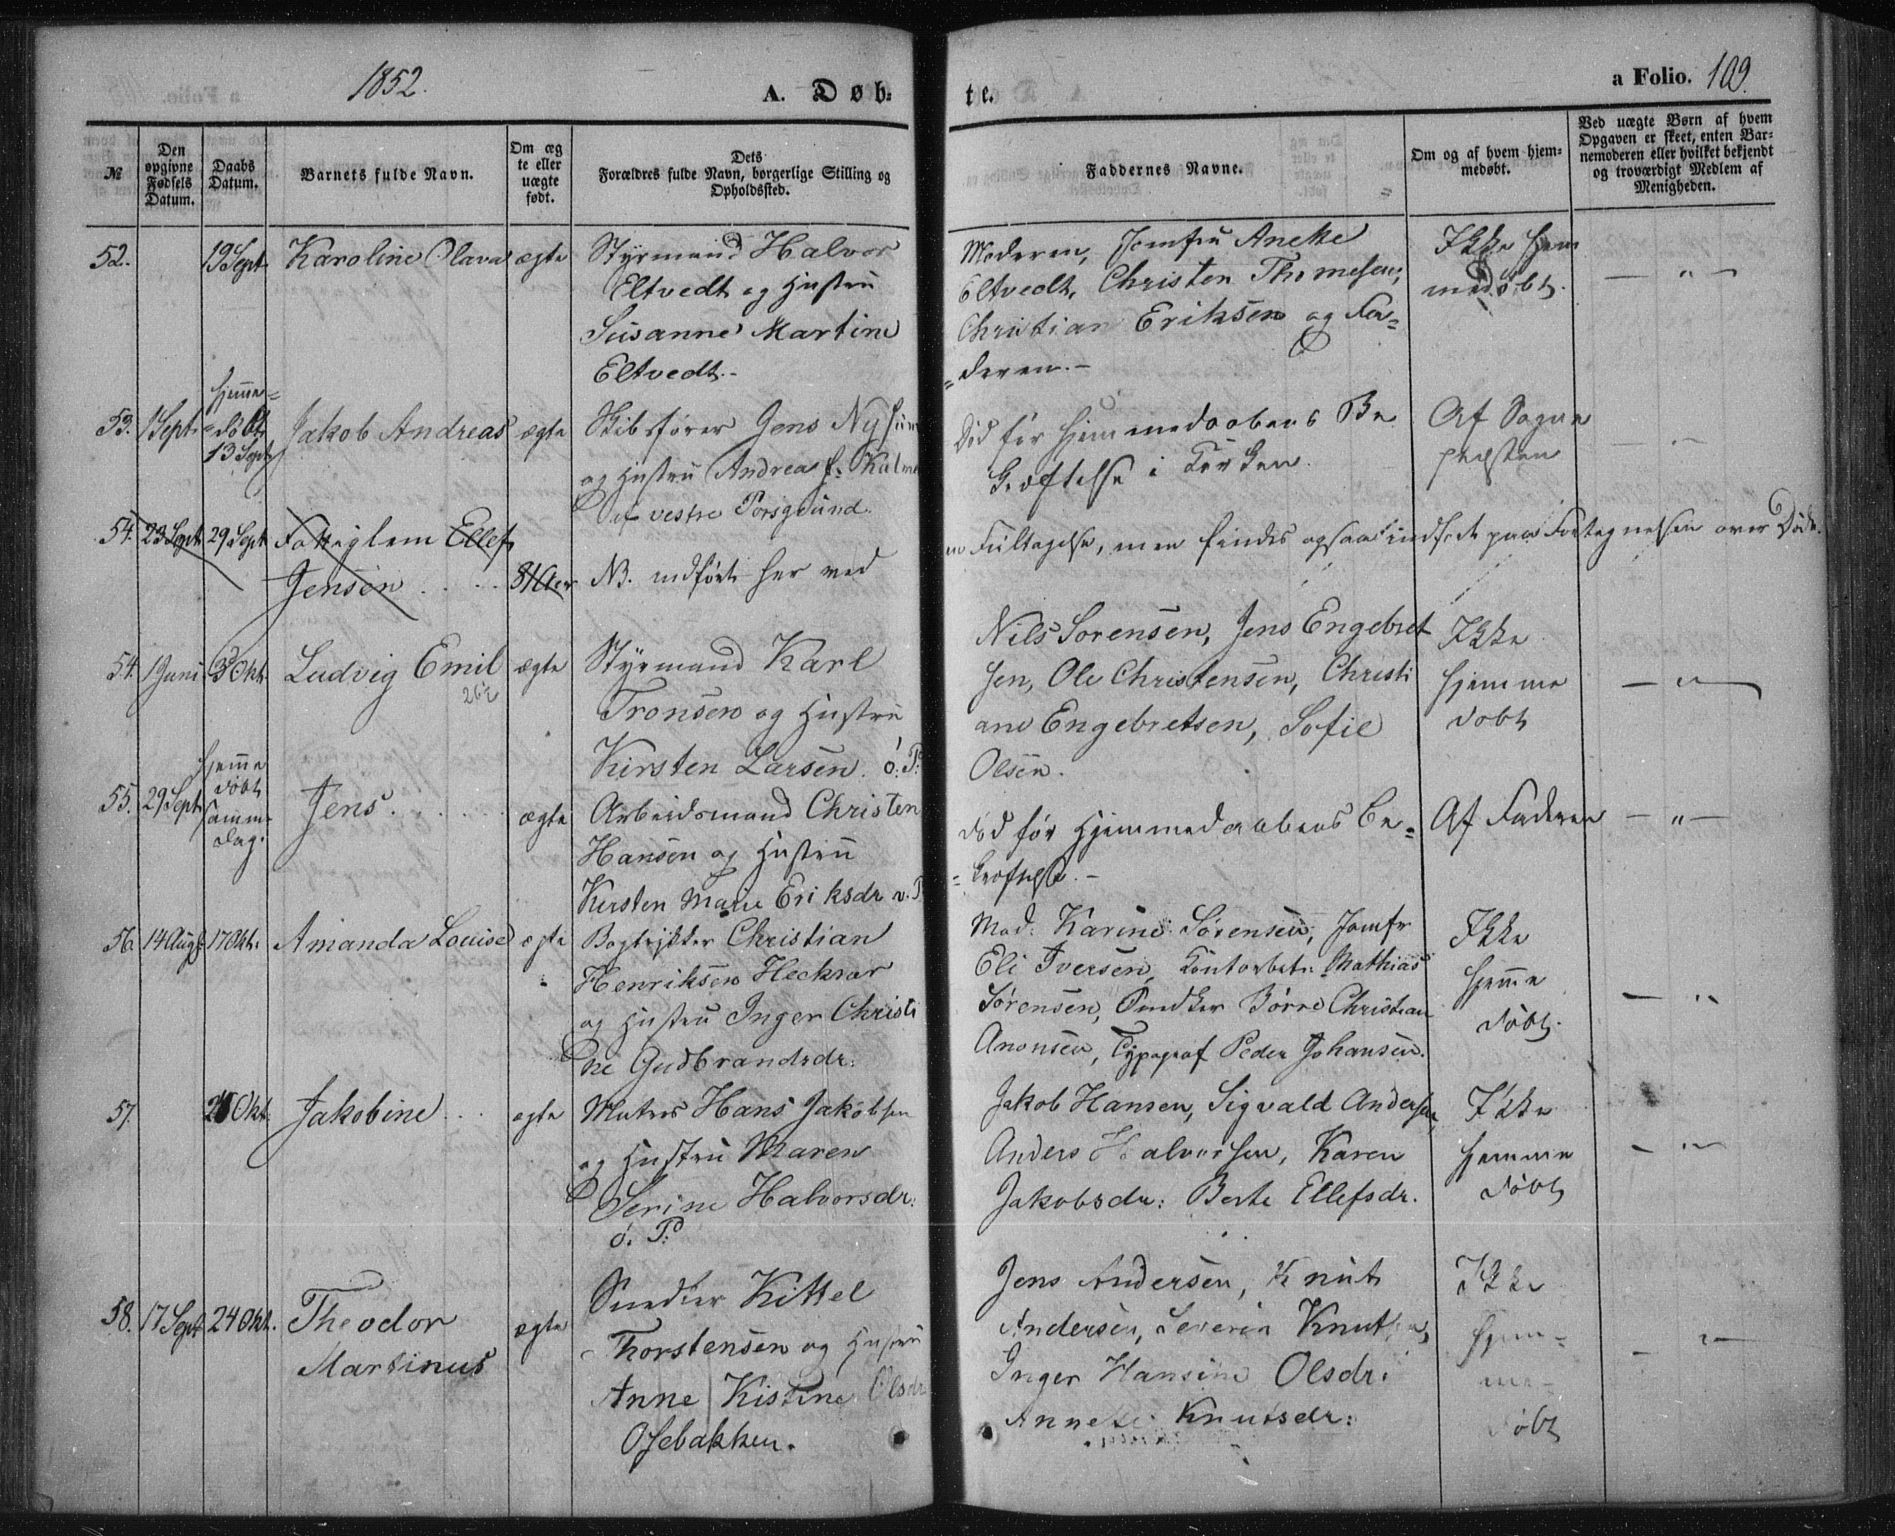 1852.
A. Døb-
te.
a Folio. 109.
№
Den opgivne Fødsels Datum.
Daabs Datum.
Barnets fulde Navn.
Om ægte eller uægte født.
Dets Forældres fulde Navn, borgerlige Stilling og Opholdssted.
Faddernes Navne.
Om og af hvem hjemmedøbt.
Ved uægte Børn af hvem Opgaven er skeet, enten Barnemoderen eller hvilket bekjendt og troværdigt Medlem af Menigheden.
52. 19 Sept. Karoline Olava ægte
Styrmand Halvor
Eltvedt og Hustru
Susanne Martine
Eltvedt.-
Moderen, Jomfru Aneke
Eltvedt, Christen Thomesen,
Christian Eriksen og Fa=
=deren.-
Ikke hjem
medøbt.
— " —
53. 1 Sept. hjemme=
=døbt
13 Sept.
Jakob Andreas ægte
Skibsfører Jens Ny
og Hustru Andrea f.
af vestre Porsgrund.
Død før Hjemmedaabens Be
kræftelse i Kirken.
Af Sogne
præsten
— " —
54. 23 Sept. 29 Sept Fattiglem Ellef
Jensen . . . . 8
NB. indført her ved
en Feiltagelse, men findes ogsaa indført paa Fortegnelsen over Døde.
54. 1 Juni 3 Okt. Ludvig Emil ægte
Styrmand Karl
Tronsen og Hustru
Kirsten Larsen. ø. P.
Nils Sorensen, Jens Engebret
sen, Ole Christensen, Christi
ane Engebretsen, Sofie
Olsen.
Ikke
hjemme
døbt
— " —
55. 29 Sept. hjemme
døbt
samme
Dag.
Jens . . . . . ægte
Arbeidsmand Christen
Hansen og Hustru
Kirsten Marie Eriksdr v. P.
Død før Hjemmedaabens be=
=kræftelse.-
Af Faderen
— " —
56. 14 Aug. 17 Okt. Amanda Louise ægte
Bogtrykker Christian
Henriksen
og Hustru Inger Christi
ne Gudbrandsdr.
Mad. Karine Sørensen, Jomfr
Eli Iversen, Kontorbetj. Mathias
Sørensen, Snedker Børre Christian
Anonsen, Typograf Peder Johansen.
Ikke
hjemme
døbt.
— " —
57. Okt. Jakobine . . . ægte
Matros Hans Jakobsen
og Hustru Maren
Serine Halvorsdr.
ø. P.
Jakob Hansen, Sigvald Andersen,
Anders Halvorsen, Karen
Jakobsdr. Berte Ellefsdr.
Ikke
hjemme
døbt
— " —
58. 17 Sept 24 Okt. Theodor
Martinus
ægte
Snedker Kittel
Thorstensen og Hustru
Anne Kistine Olsdr
Osebakken.
Jens Andersen, Knut
Andersen, Severin Knutsen,
Inger Hansine Olsdr.
Annete Knutsdr.
Ikke
hjem-
me-
døbt
— " —